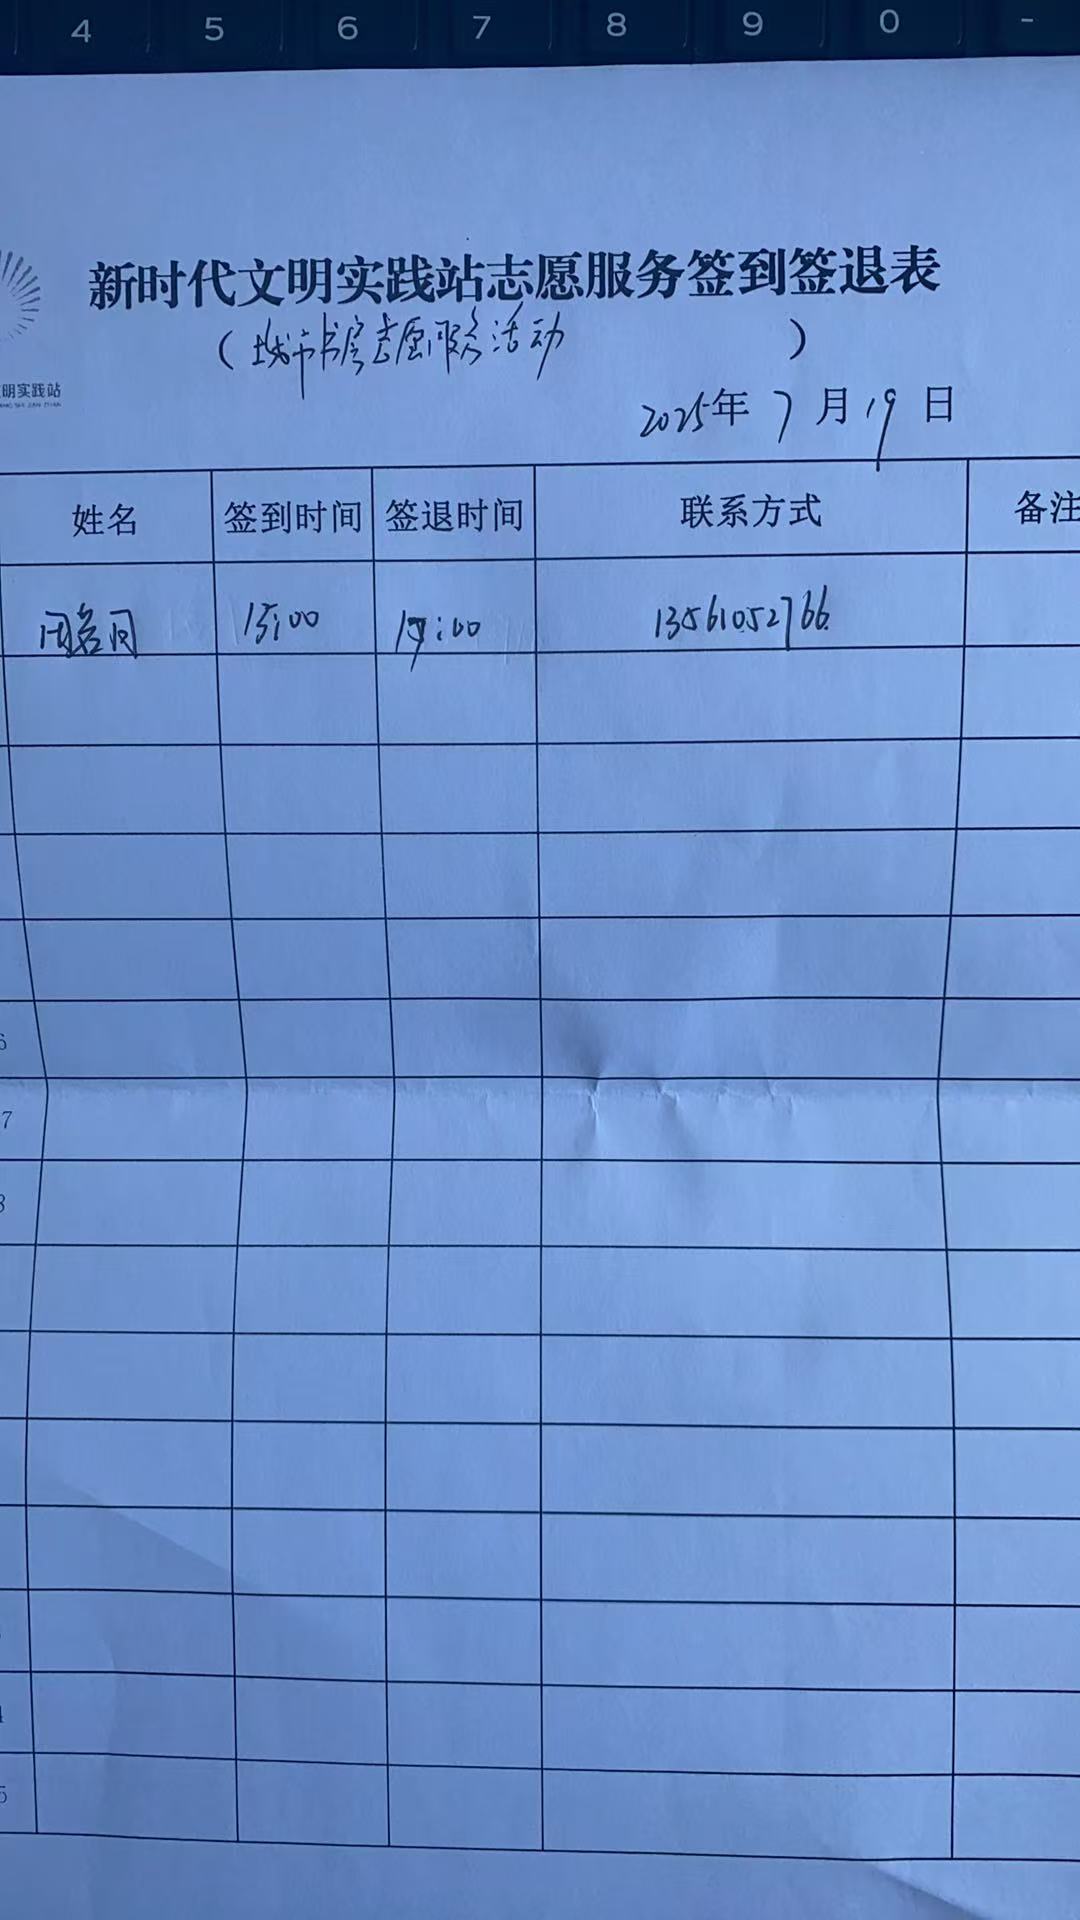 4 5 6 7 8 9 0 -
新时代文明实践站志愿服务签到签退表
(城市书房志愿服务活动)
明实践站
2025年 7月19日
姓名 签到时间 签退时间 联系方式 备注
15:00 17:00 13561052766
6
7
8
4
5